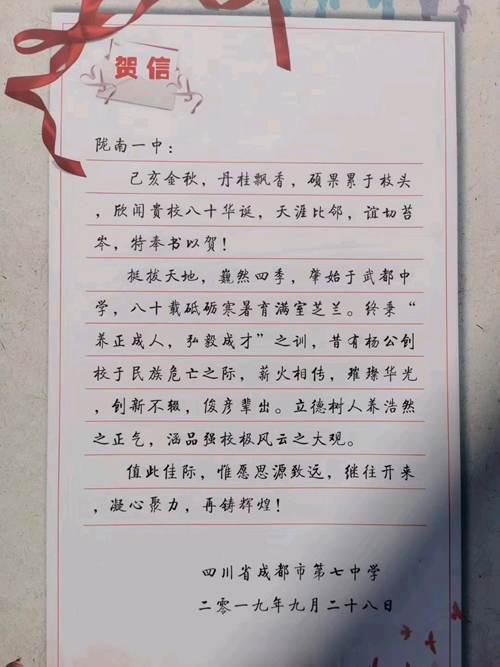 贺信
陇南一中：
己亥金秋，丹桂飘香，硕果累于枝头
，欣闻貴校八十华诞，天涯比邻，谊切苔
岑，特奉书以贺！
挺拔天地，巍然四季，肇始于武都中
学，八十载砥砺寒暑育满室芝兰。终秉“
养正成人，弘毅成才”之训，昔有杨公创
校于民族危亡之际，薪火相传，璀璨华光
，创新不辍，俊彦辈出。立德树人养浩然
之正气，涵品强校极风云之大观。
值此佳际，惟愿思源致远，继往开来
，凝心聚力，再铸辉煌！
四川省成都市第七中学
二零一九年九月二十八日